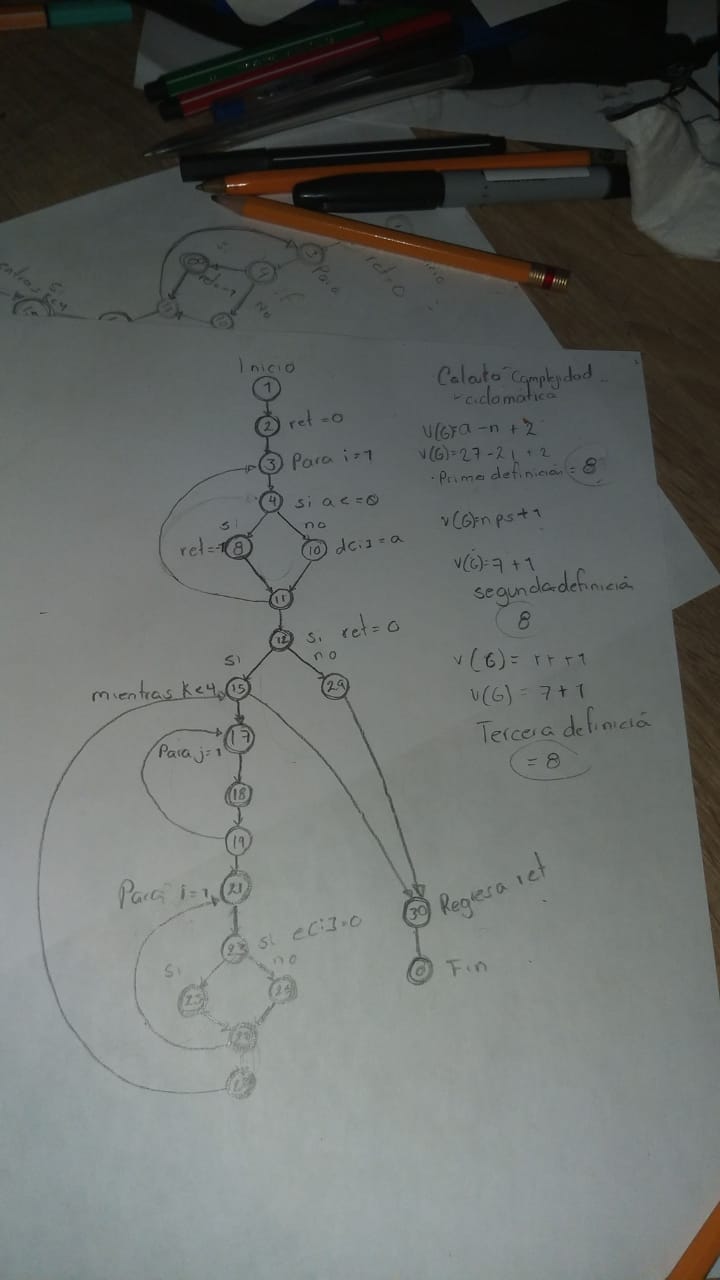 Inicio
1
2 ret=0
3 Para i=1
4 si a<=0
si
no
ret=-1 8
10 d[i]=a
11
12 si ret=0
si
no
mientras key 15
29
17
Para j=1
18
19
Para i=1 21
23 si e[i]=0
si
no
25
30 Regresa ret
0 Fin
Calculo Complejidad
ciclomática
V(G)=a-n+2
V(G)=27-21+2
Prime definición = 8
V(G)=nps+1
V(G)=7+1
segunda definició
8
V(G)= r+1
V(G)=7+1
Tercera definició
=8
3
Para
ret=0
if
No